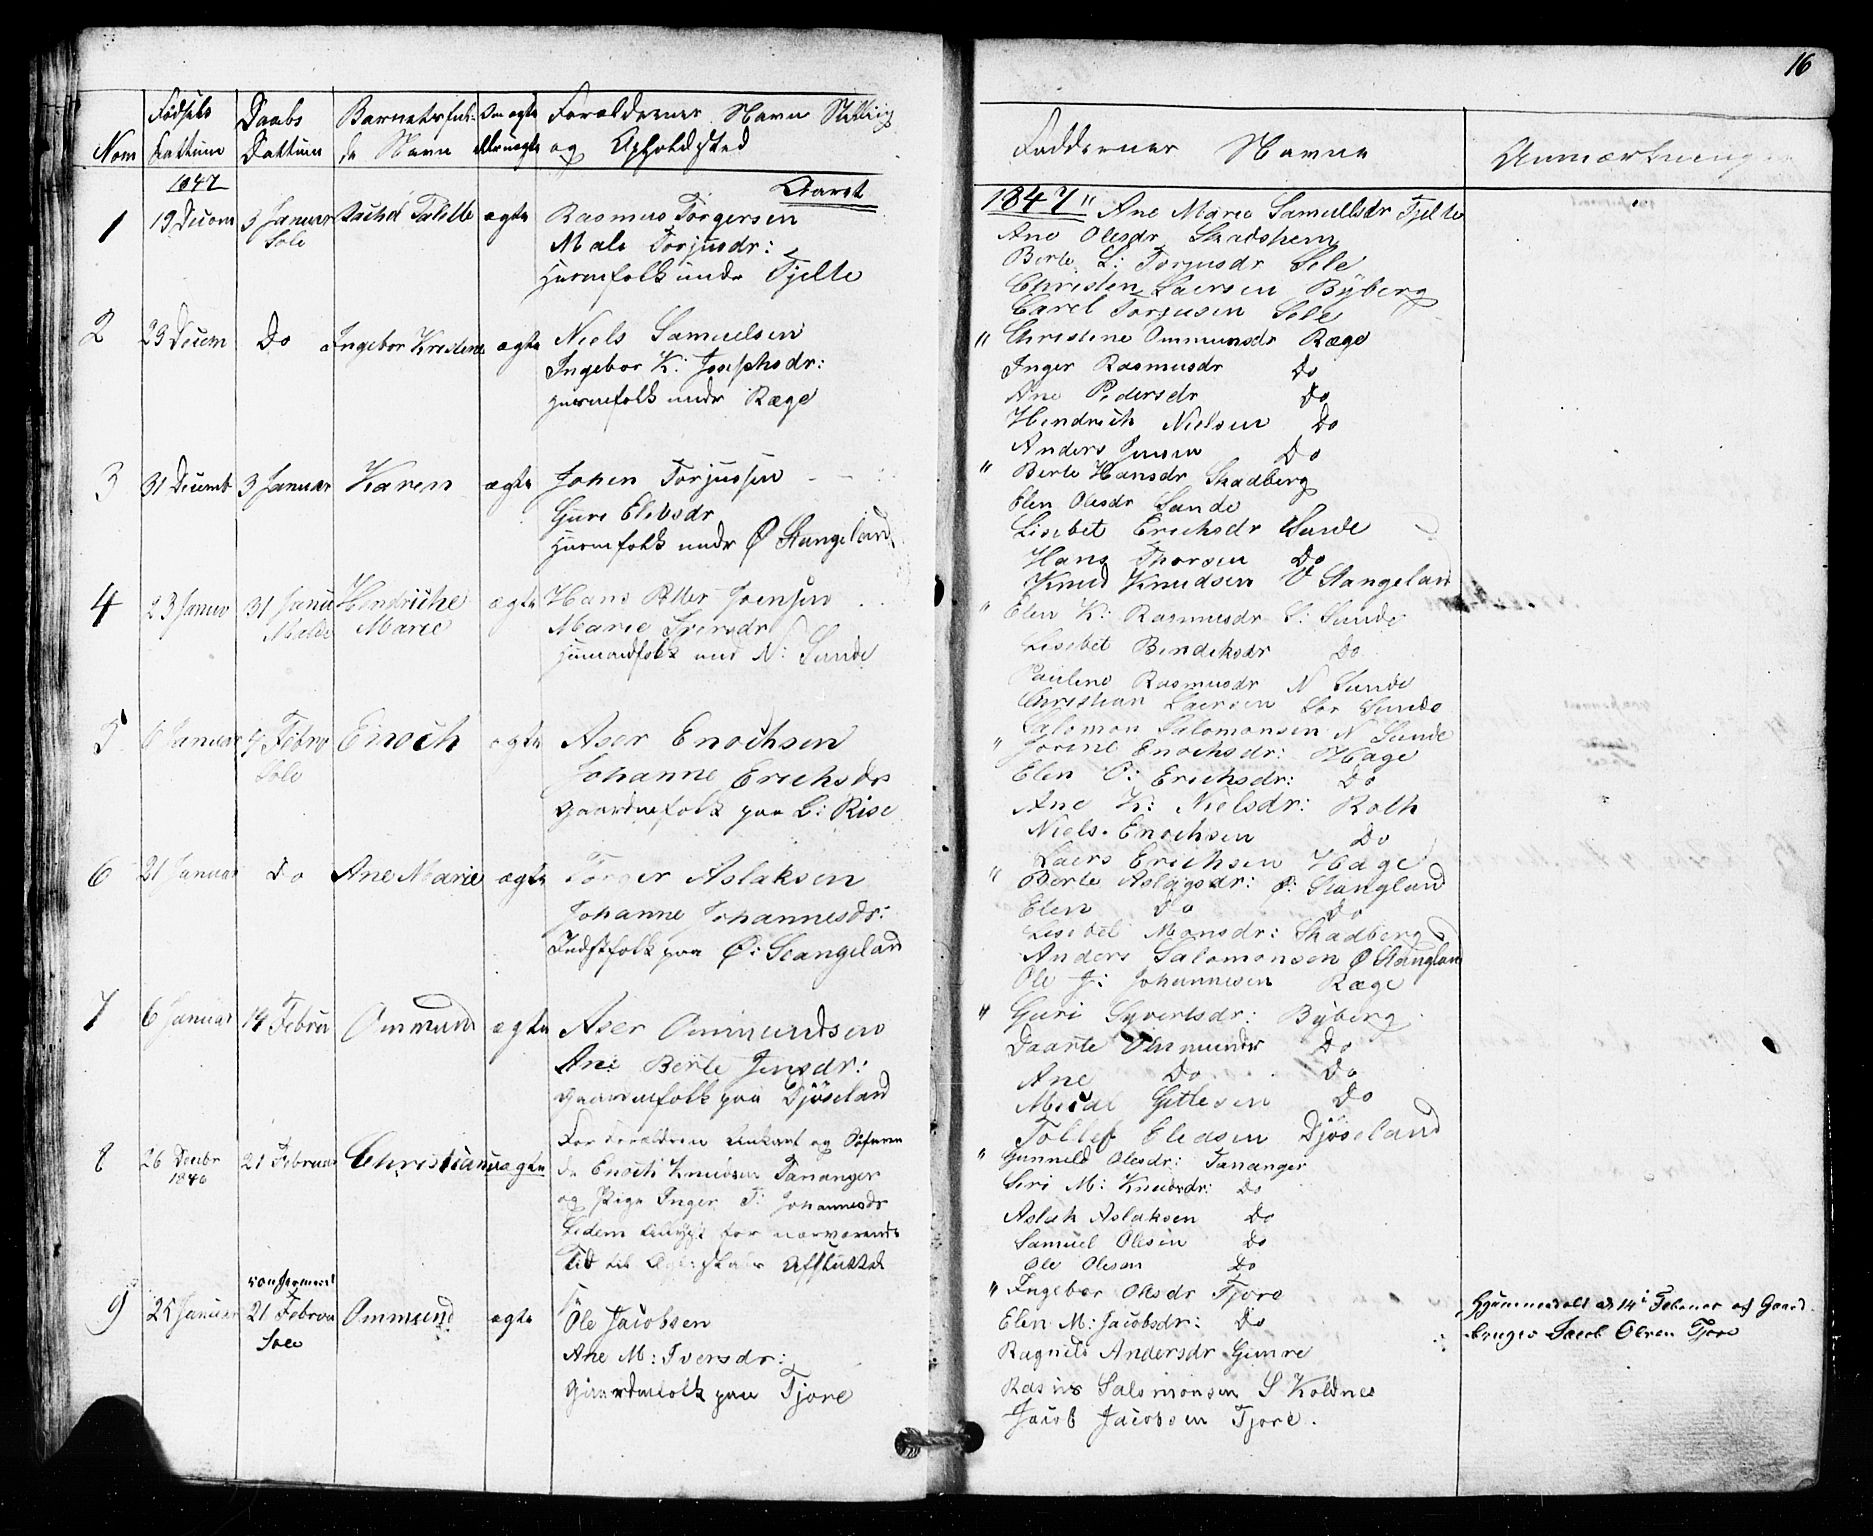 16
Nom
Fødsels Dattum
Daabs Dattum
Barnets fulde Navn
Om ægte eller uægte
Forældrenes Navn Stilling og Opholdsted
Faddernes Navne
Anmærkninger
1847
Aaret 1847
1 19 Decem 3 Januar Sole Talette ægte
Rasmus Torgersen
Male Torjusdr:
Huusmfolk under Tjelte
" Ane Marie Samuelsdr Tjelte
Ane Olesdr Skadshem
Berte L: Torjusdr Sele
Christen Laersen Byberg
Carel Torjusen Sele
2 23 Decem Do Ingebor Kristene ægte
Niels Samuelsen
Ingebor K: Josephsdr:
Huusmfolk under Ræge
" Christene Ommunsdr Ræge
Inger Rasmusdr Do
Ane Pedersdr Do
Hendrich Nielsen Do
Anders Jensen Do
3 31 Decemb 3 Januar Karen ægte
Johen Torjussen
Guri Elevsdr
Huusmfolk under Ø Stangeland
" Berte Hansdr Skadberg
Elen Olesdr Sande
Lisebet Erichsdr Sunde
Hans Thorsen Do
Knud Knudsen V Stangelan
4 23 Janu 31 Janu Hendriche Marie ægte
Hans Joensen
Marie Iversdr
N: Sunde
" Elen K: Rasmusdr S: Sunde
Lisebet Bendeksdr Do
Pauline Rasmusdr N Sunde
Christian Laersen Sør Sunde
Salomon Salomonsen N Sunde
5 6 Januar 7 Febru Sole Enoch ægte
Aser Enochsen
Johanne Erichsdr
Gaardmfolk paa L: Rise
" Jorine Enochsdr: Hage
Elen O: Erichsdr: Do
Ane K: Nielsdr: Roth
Niels Enochsen Do
Laers Erichsen Hage
6 21 Januar Do Ane Marie ægte
Torger Aslaksen
Johanne Johannesdr:
Indstfolk paa Ø: Stangeland
" Berte Aslagsdr: Ø: Stangland
Elen Do Do
Lisebet Monsdr: Skadberg
Anders Salomonsen Ø Stanglan
Ole J: Johannesen Ræge
7 6 Januar 14 Februa Ommund ægte
Aser Ommundsen
Ane Berte Jensdr:
Gaardmfolk paa Djøseland
" Guri Syvertsdr: Byberg
Daarte Ommundsdr Do
Ane Do Do
Gitlesen Do
Tollef Eledsen Djøseland
8 26 Decbr 1846 21 Februar Christiane uægte
For Forældren og
de Enoch Knudsen Tananger
og Pige Inger T: Johannesdr
for nærværende
Tid til
" Gunneld Olesdr: Tananger
Siri M: Knudsdr: Do
Aslak Aslaksen Do
Samuel Olesen Do
Ole Olesen Do
9 25 Januar 21 Februar Sole Ommund ægte
Ole Jacobsen
Ane M: Iversdr:
Gaardmfolk paa Tjore
" Ingebor Olesdr Tjore
Elen M: Jacobsdr: Do
Ragnild Andersdr Gimre
Rasmus Salomonsen S Koldnes
Jacob Jacobsen Tjore.
Hjemmedøbt d 14 Februar af Gaard
bruger Jacob Olsen Tjore